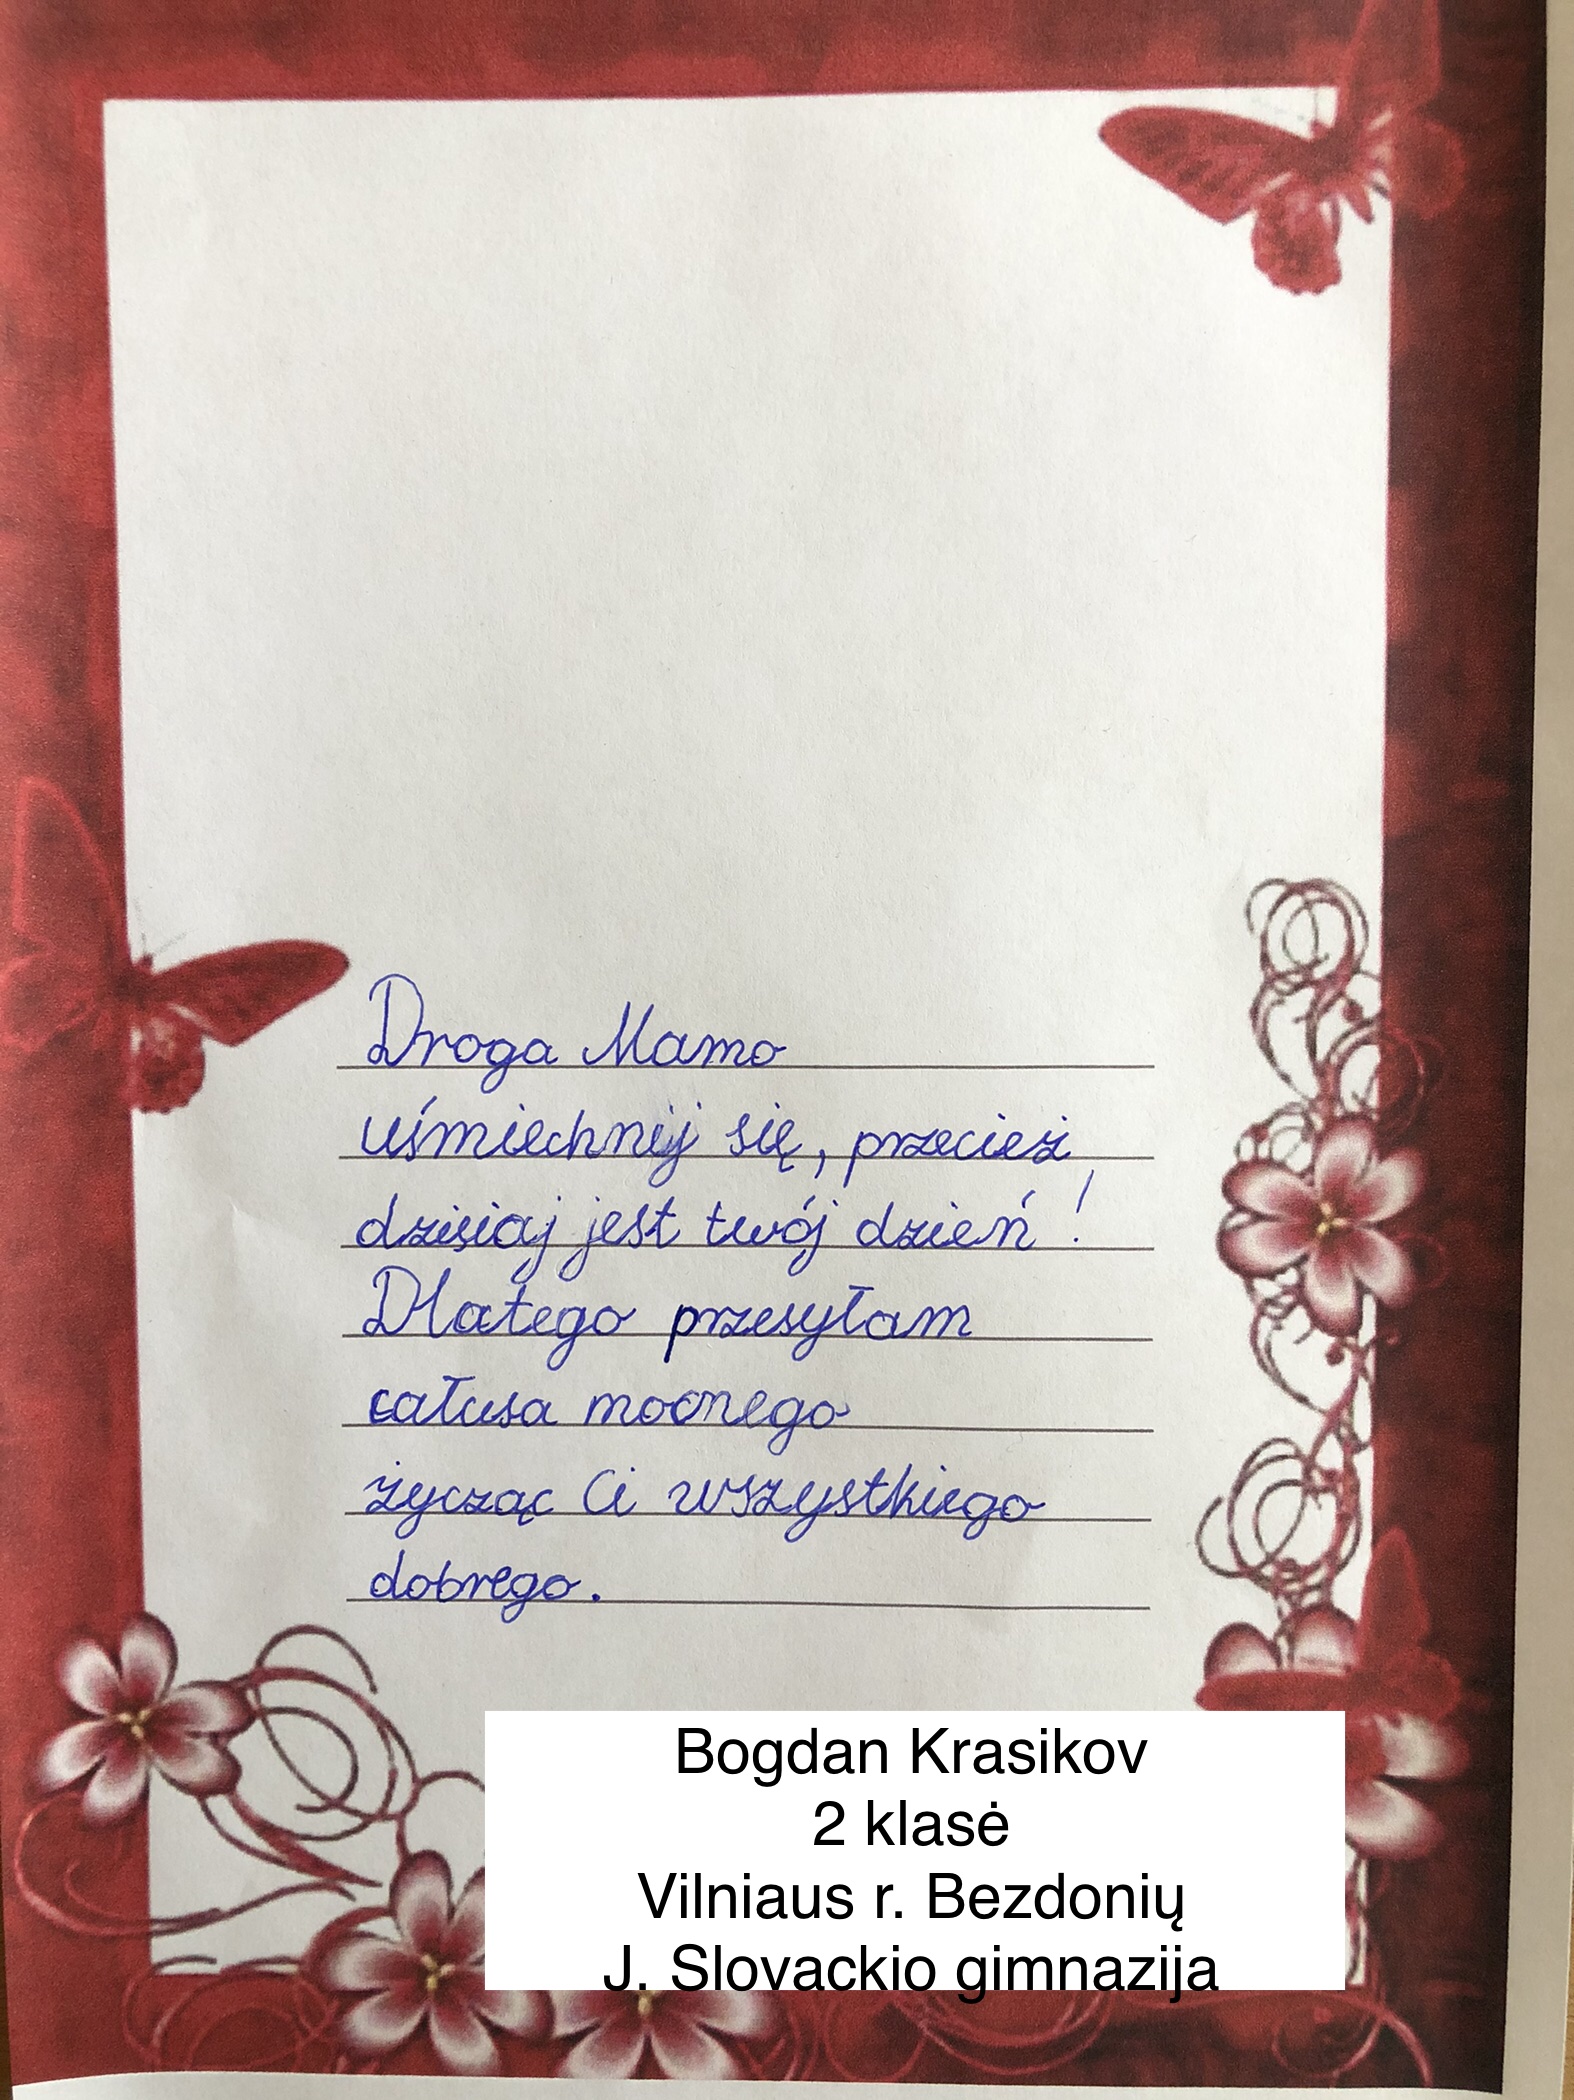 Droga Mamo
uśmiechnij się, przecież
dzisiaj jest twój dzień!
Dlatego przesyłam
całusa mocnego
życząc Ci wszystkiego
dobrego.
Bogdan Krasikov
2 klasė
Vilniaus r. Bezdonių
J. Slovackio gimnazija